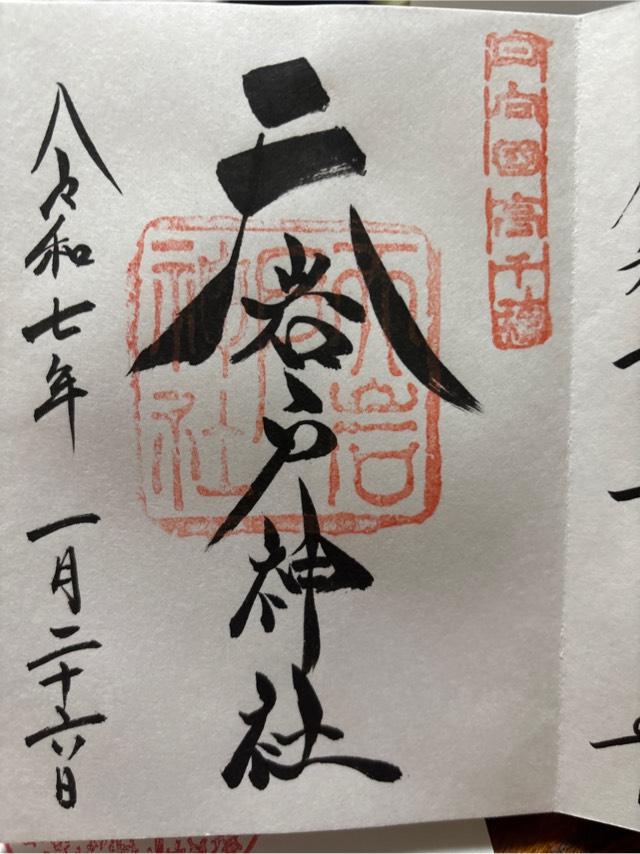 日向國高千穂
天岩戸神社
天岩戸神社
令和七年 一月二十六日